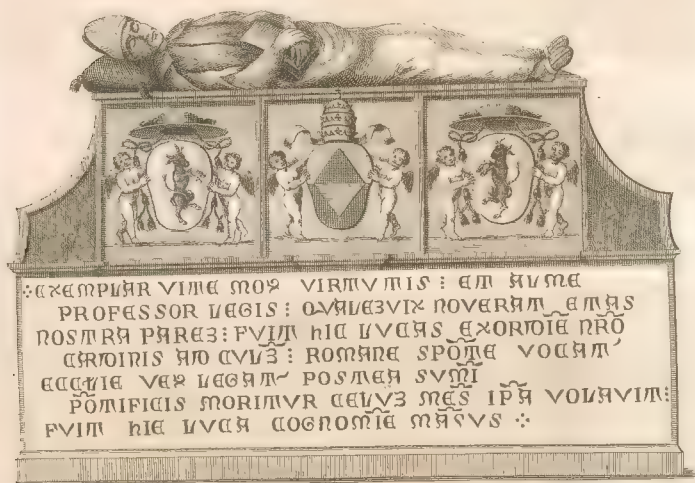 ⁘EXEMPLAR VITE MOꝜ VIRTVTIS : ET ALME
PROFESSOR LEGIS : QVALEꝪ VIX NOVERAT ETAS
NOSTRA PAREꝪ : FVIT HIC LVCAS EXORDIE NR̄O
CARDINIS AD CVLꝪ : ROMANE SPŌTE VOCAT'
ECCL̄IE VEꝜ LEGAT~ POSTEA SVM̄I
PŌTIFICIS MORITVR CELVꝪ MĒS IP̄A VOLAVIT :
FVIT HIC LVCA COGNOMIE